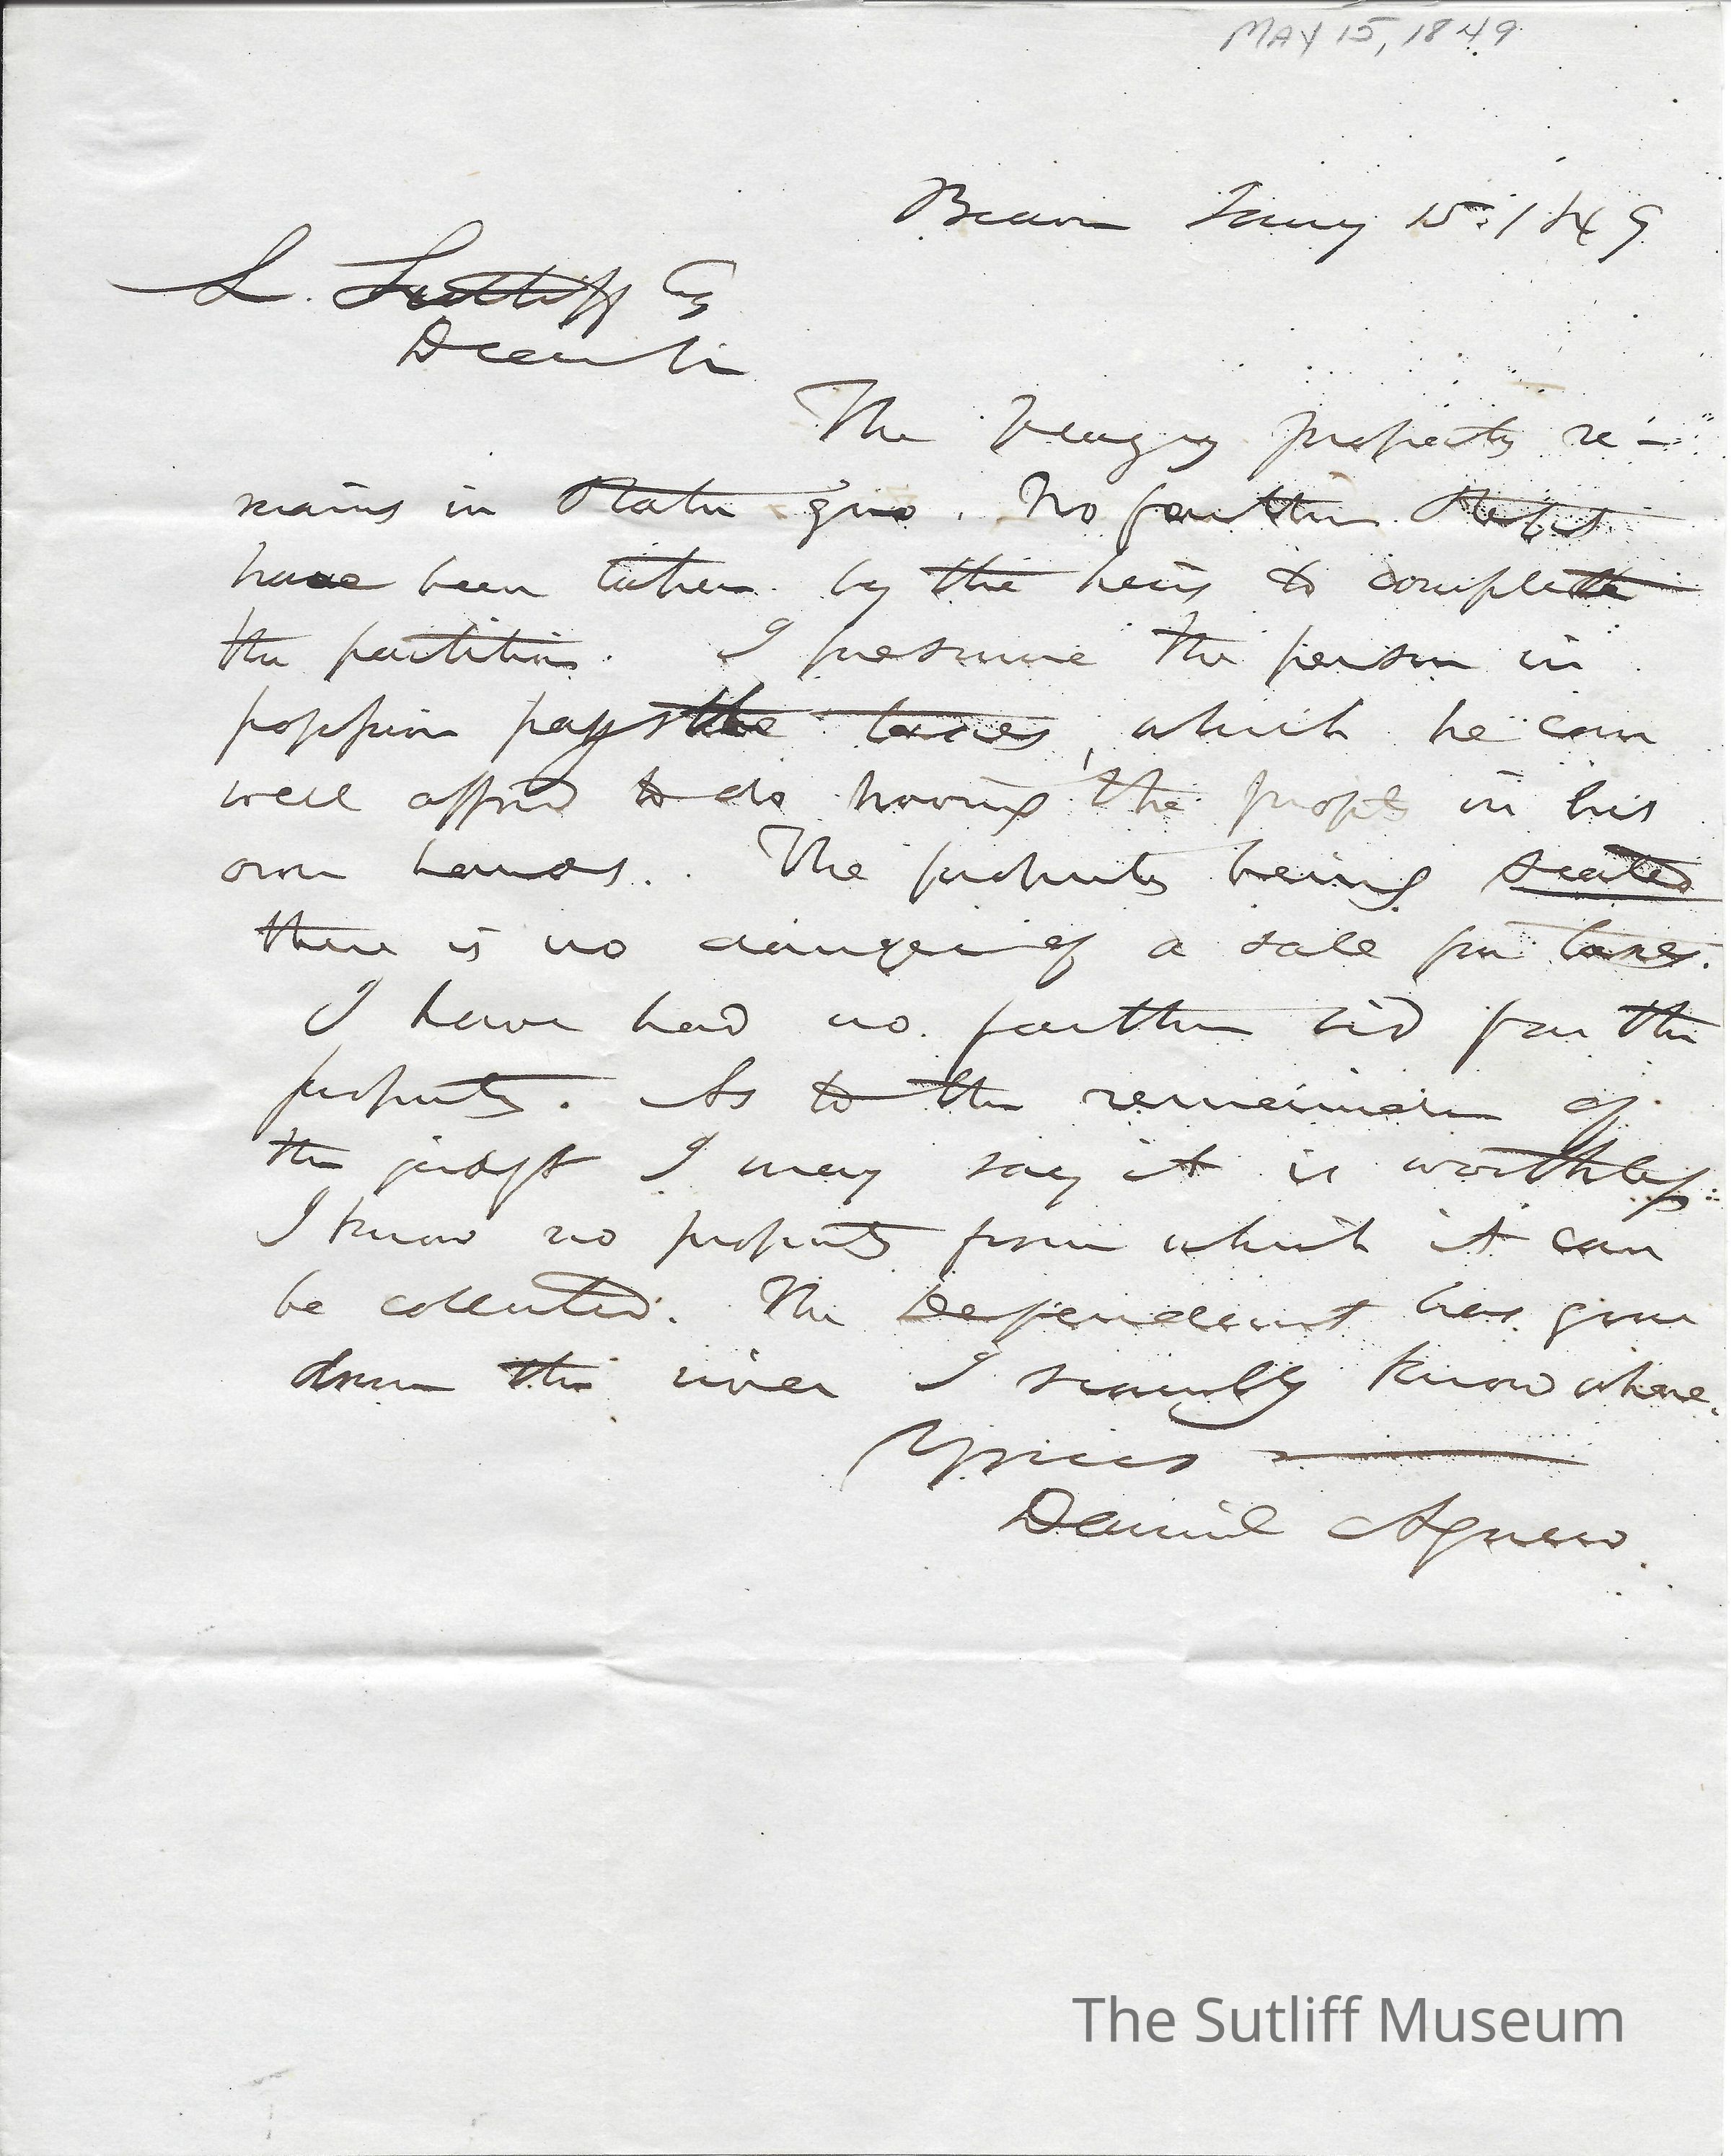 MAY 15, 1849
Beaver Jany 15. 1849
L. Sutliff Esq
Dear Sir
The property re-
mains in Statu quo. No further steps
have been taken by the heirs to complete
the partition. I presume the person in
possession pays the taxes, which he can
well afford to do having the profits in his
own hands. The property being seated
there is no danger of a sale for taxes.
I have had no further bid for the
property. As to the remainder of
the judgt I may say it is worthless.
I know no property from which it can
be collected. The Defendant has gone
down the river I scarcely know where.
Yours
Daniel Agnew.
The Sutliff Museum